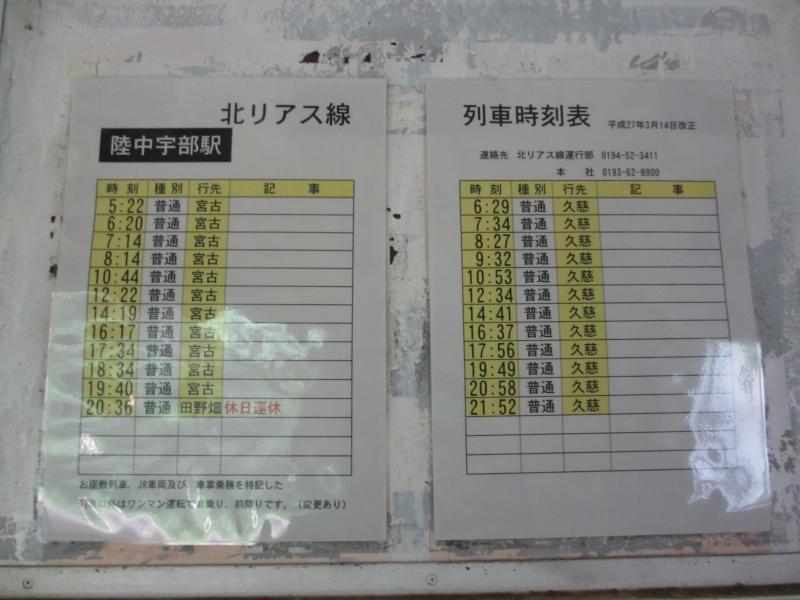 北リアス線
陸中宇部駅
時刻 種別 行先 記事
5:22 普通 宮古
6:20 普通 宮古
7:14 普通 宮古
8:14 普通 宮古
10:44 普通 宮古
12:22 普通 宮古
14:19 普通 宮古
16:17 普通 宮古
17:34 普通 宮古
18:34 普通 宮古
19:40 普通 宮古
20:36 普通 田野畑 休日運休
お座敷列車、JR車両及び、車掌乗務を特記した
以外はワンマン運転で前乗り、前降りです。(変更あり)
列車時刻表 平成27年3月14日改正
連絡先 北リアス線運行部 0194-52-3411
本 社 0193-62-8900
時刻 種別 行先 記事
6:29 普通 久慈
7:34 普通 久慈
8:27 普通 久慈
9:32 普通 久慈
10:53 普通 久慈
12:34 普通 久慈
14:41 普通 久慈
16:37 普通 久慈
17:56 普通 久慈
19:49 普通 久慈
20:58 普通 久慈
21:52 普通 久慈